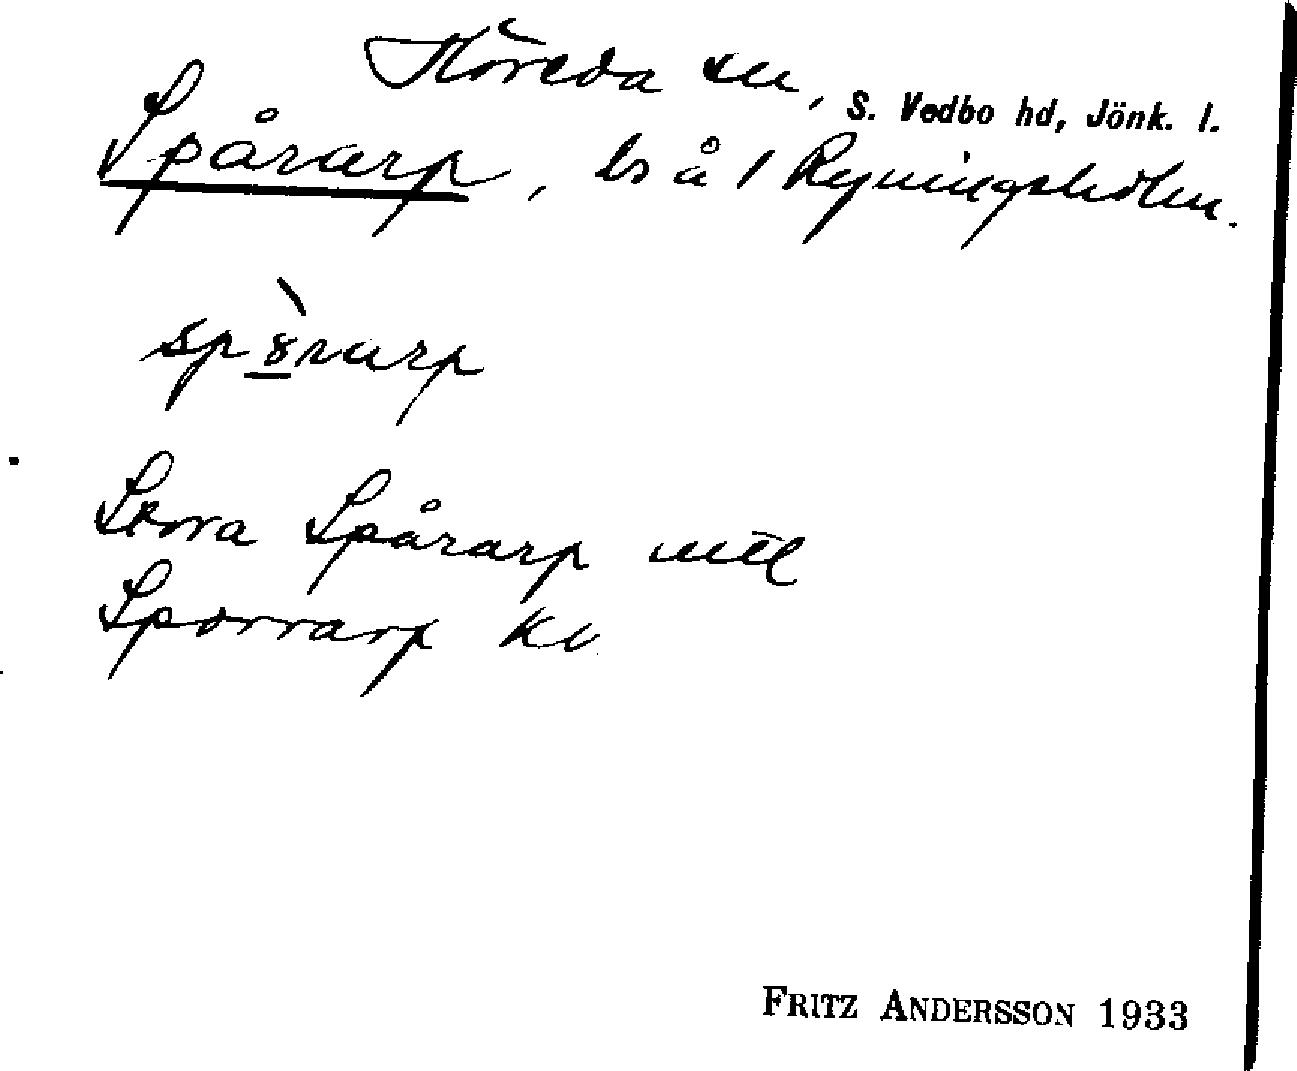 Höreda sn, S. Vedbo hd, Jönk. l.
Spårarp, ls å 1 Ryningsholm.
spȣ̀rarp
Stora Spårarp uttl
Sporrarp Kv
FRITZ ANDERSSON 1933